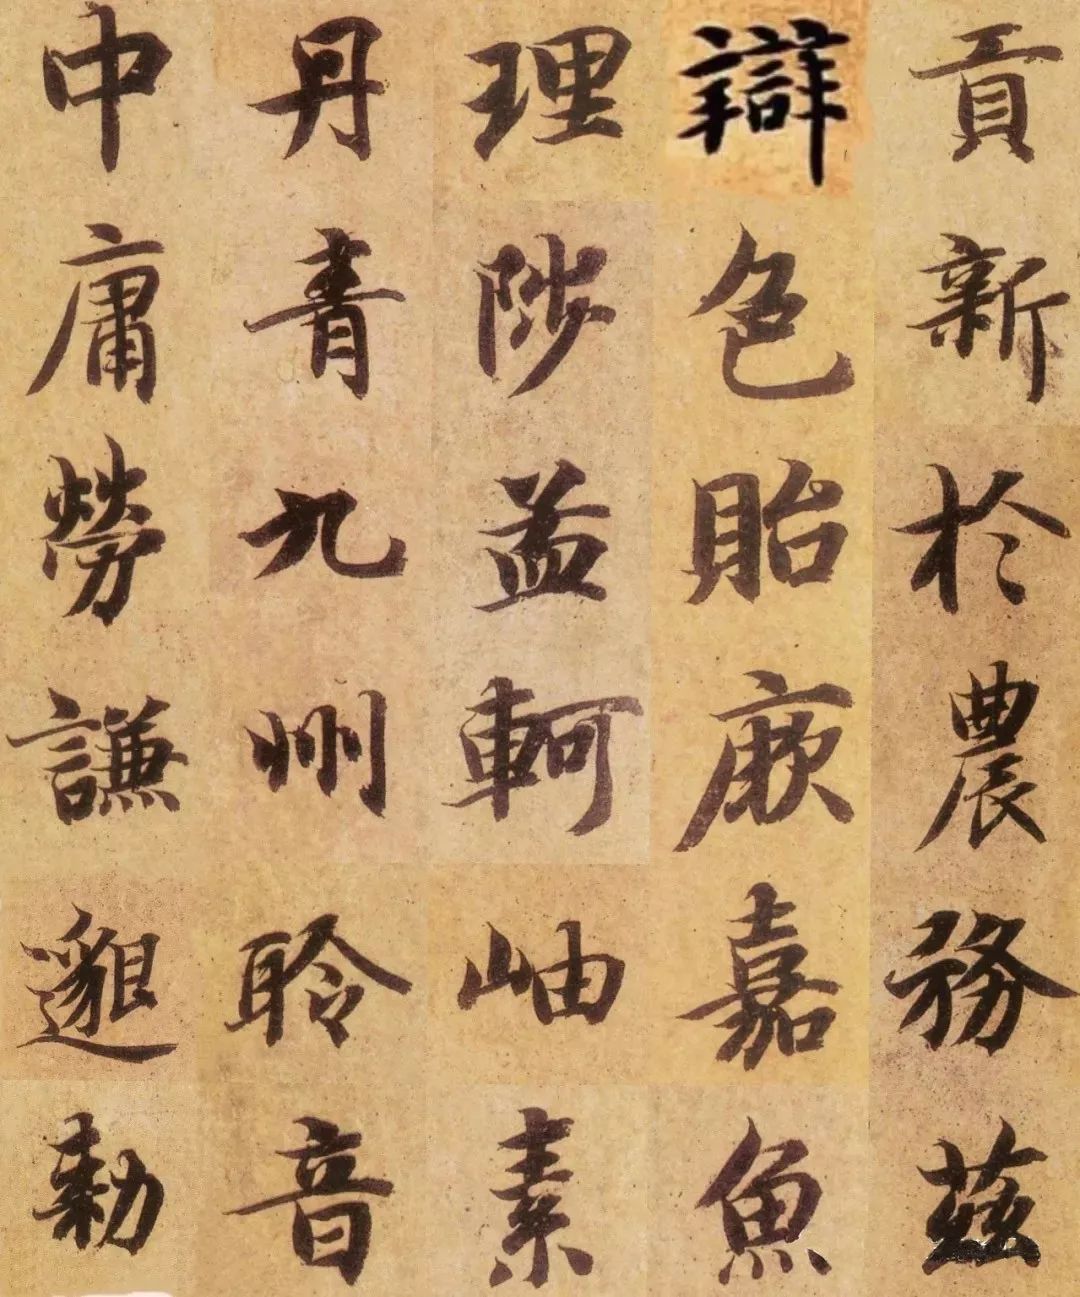 貢新於農務茲
辯色貽厥嘉魚
理陟孟軻岫素
丹青九州聆音
中庸勞謙邈勑